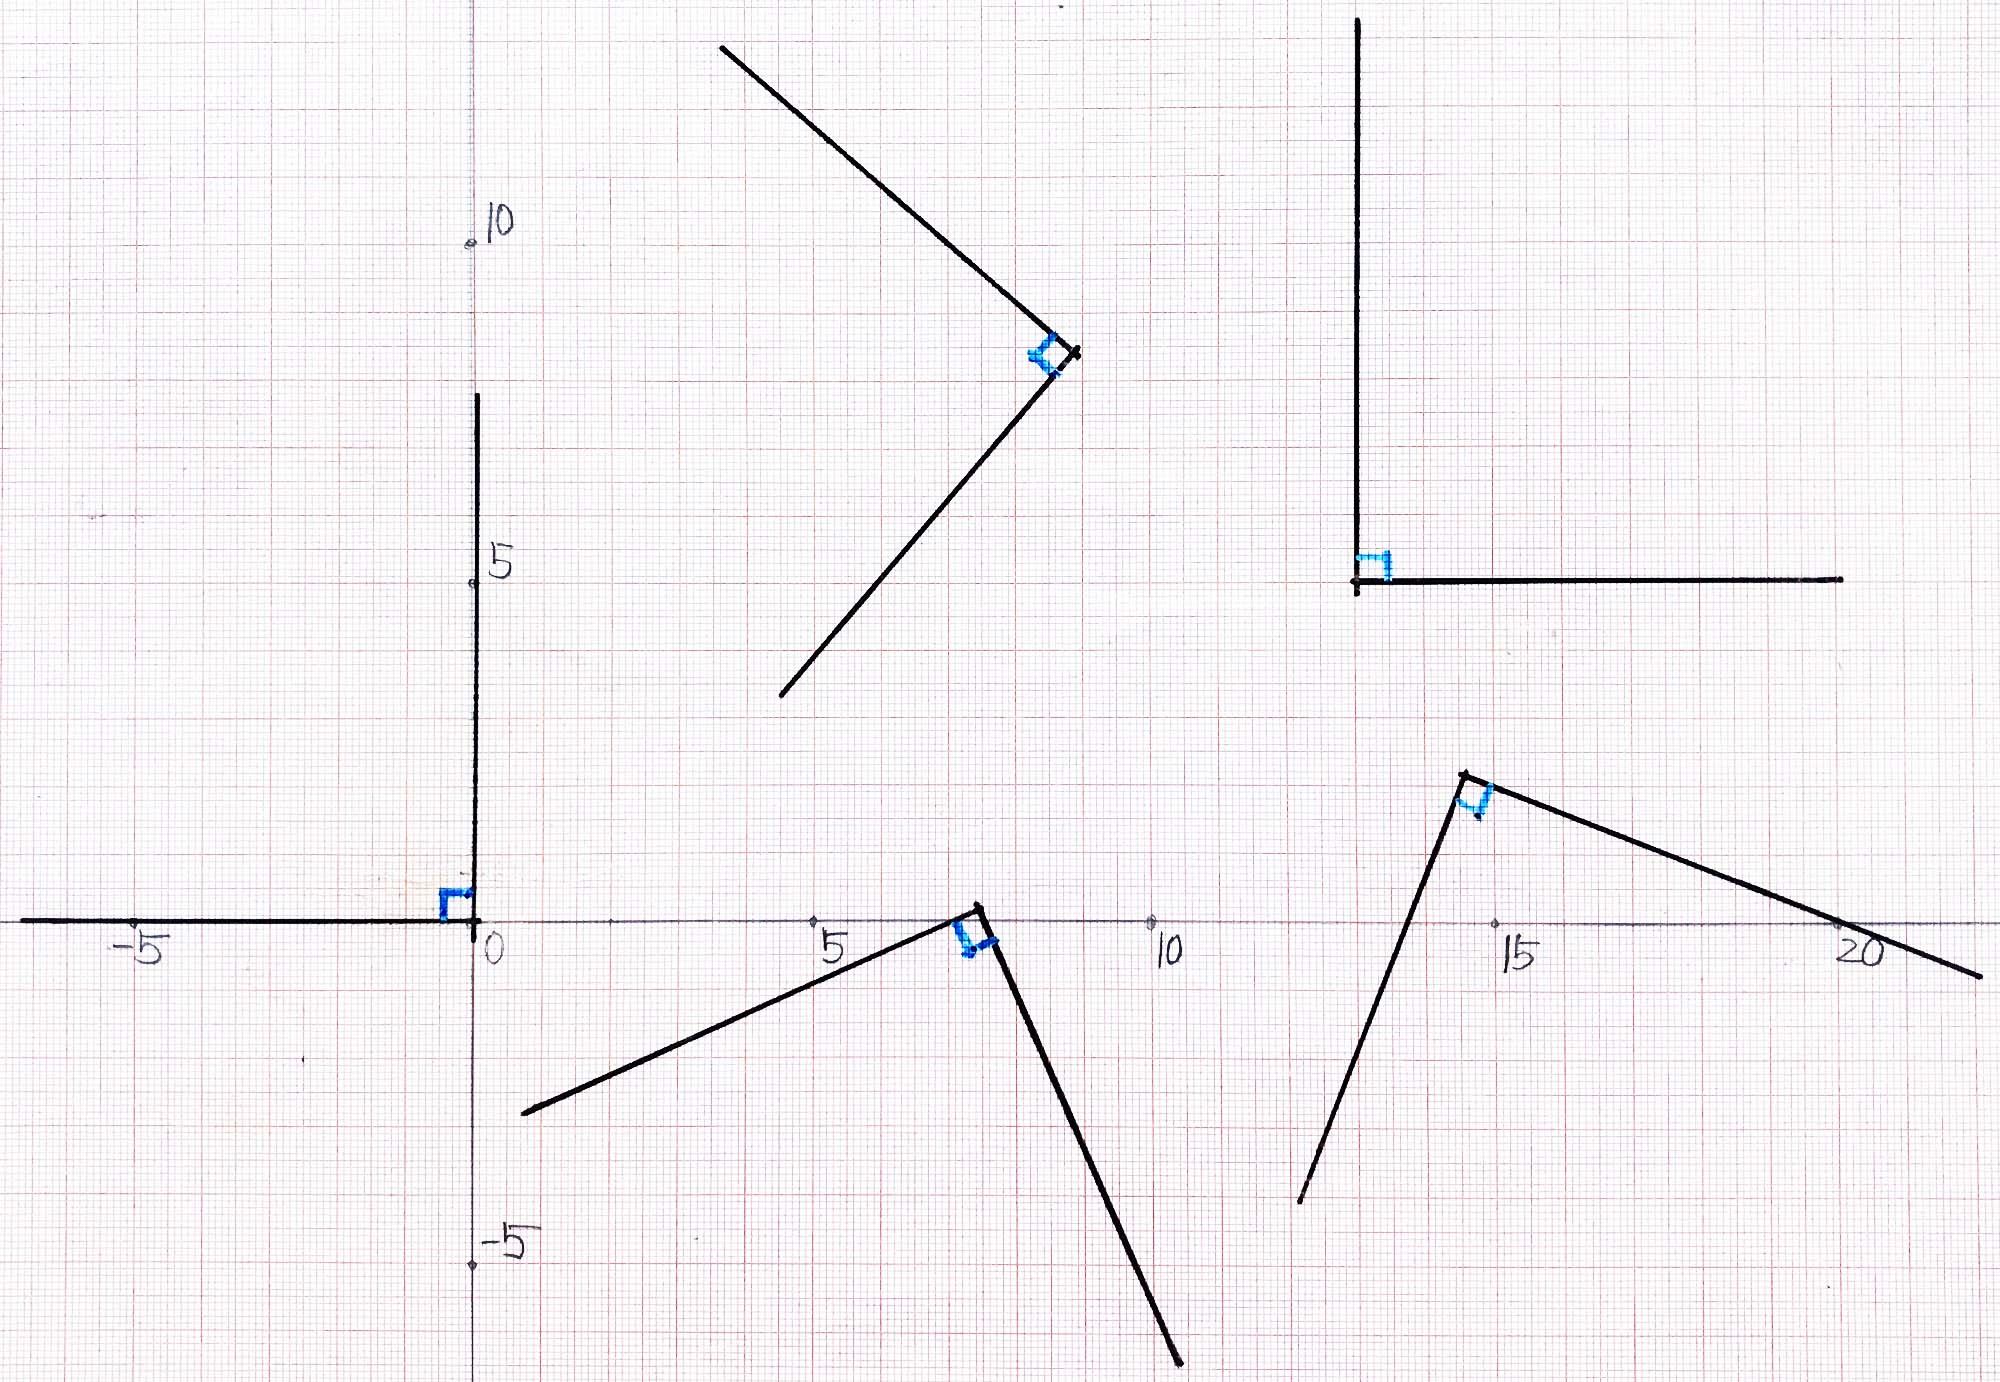 10
5
-5 0 5 10 15 20
-5